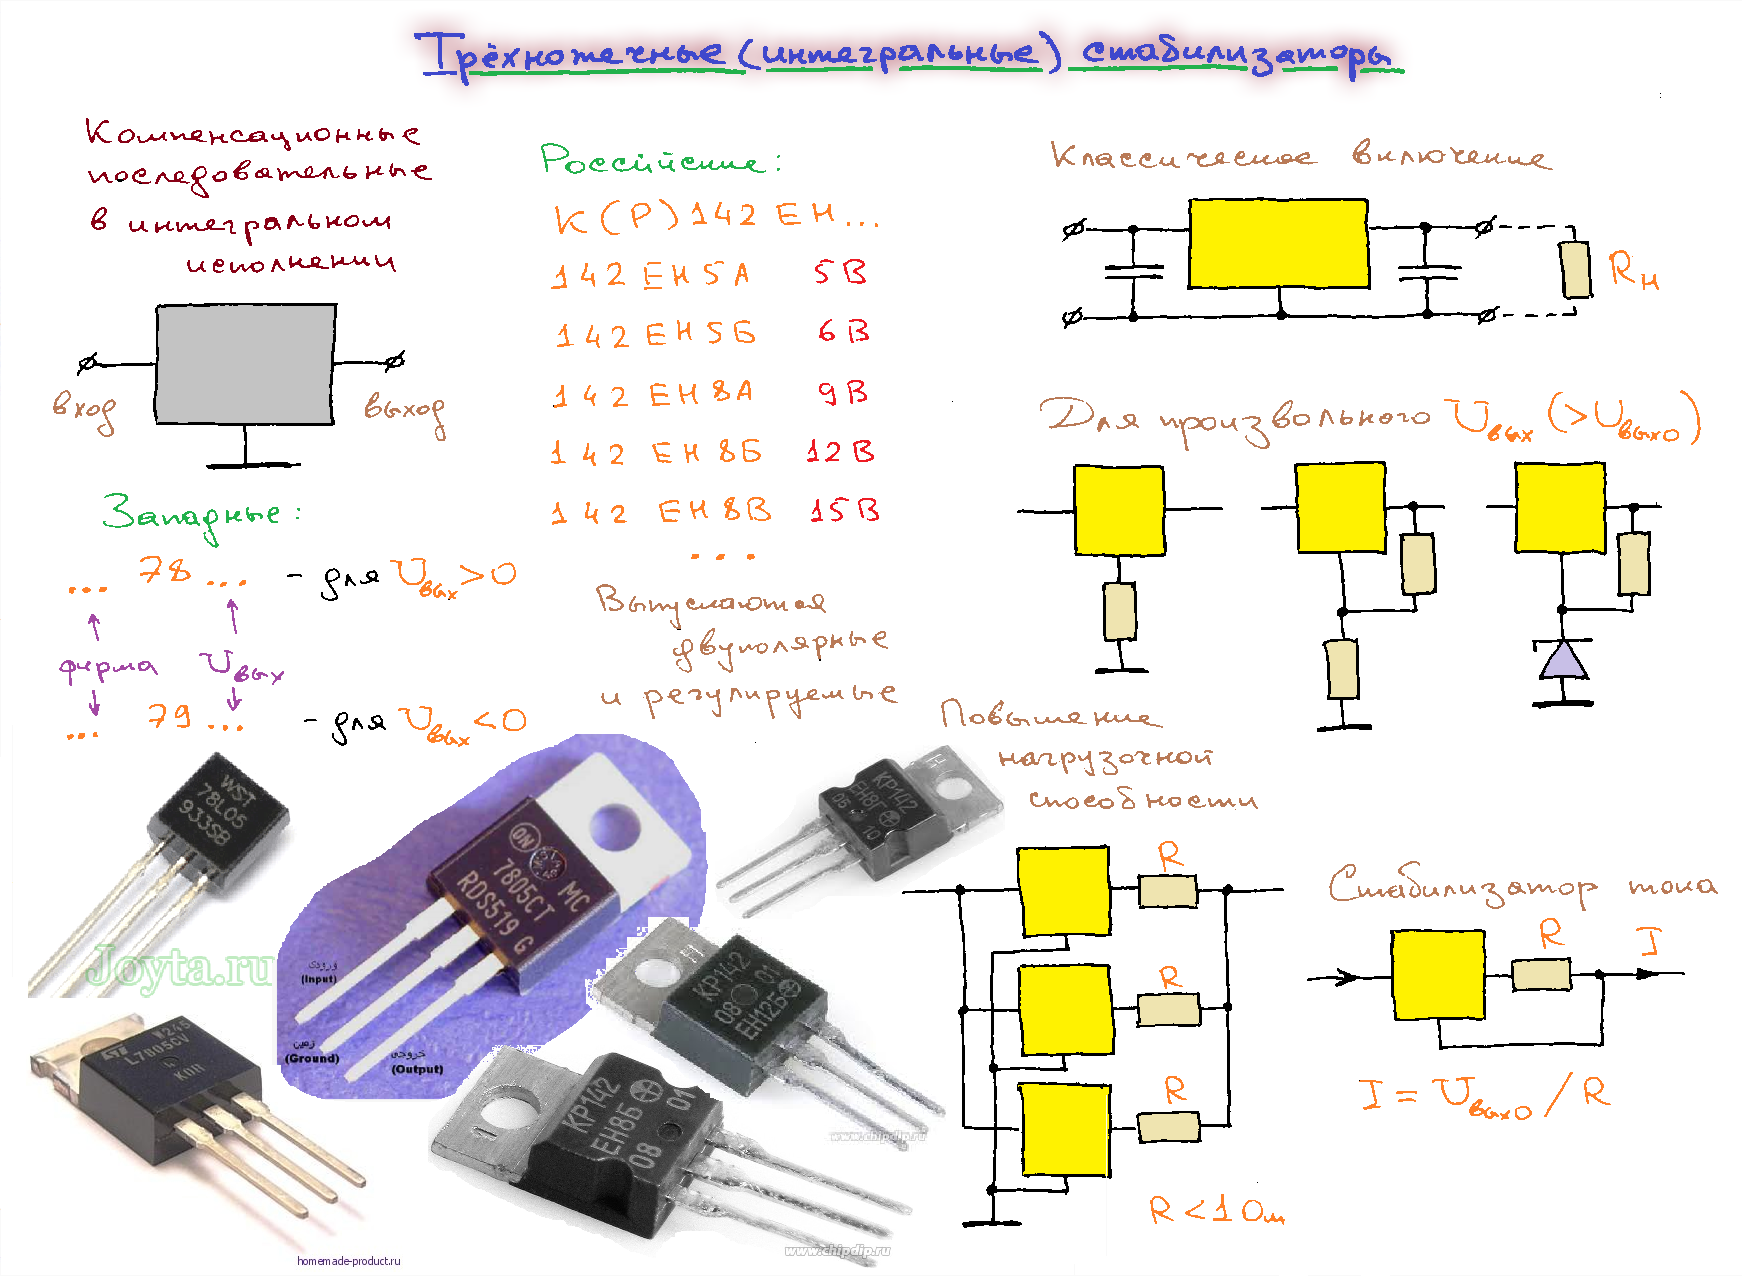 Трёхноточечные (интегральные) стабилизаторы
Компенсационные
последовательные
в интегральном
исполнении
вход
выход
Западные:
... 78 ... - для Uвых>0
фирма Uвых
... 79 ... - для Uвых<0
Российские:
К(Р)142 ЕН...
142 ЕН5А 5В
142 ЕН5Б 6В
142 ЕН8А 9В
142 ЕН8Б 12В
142 ЕН8В 15В
...
Выпускаются
двуполярные
и регулируемые
Классическое включение
Rн
Для произвольного Uвых (>Uвых0)
Повышение
нагрузочной
способности
R
R
R
R<1 Ом
Стабилизатор тока
R
I
I = Uвых0 / R
WST
78L05
933SB
Joyta.ru
ON
MC
7805CT
RDS519 G
ورودی
(Input)
زمین
(Ground)
خروجی
(Output)
КР142
ЕН8Г
05 10
КР142
ЕН12Б
08 01
www.chipdip.ru
КР142
ЕН8Б
08 01
www.chipdip.ru
L7805CV
homemade-product.ru